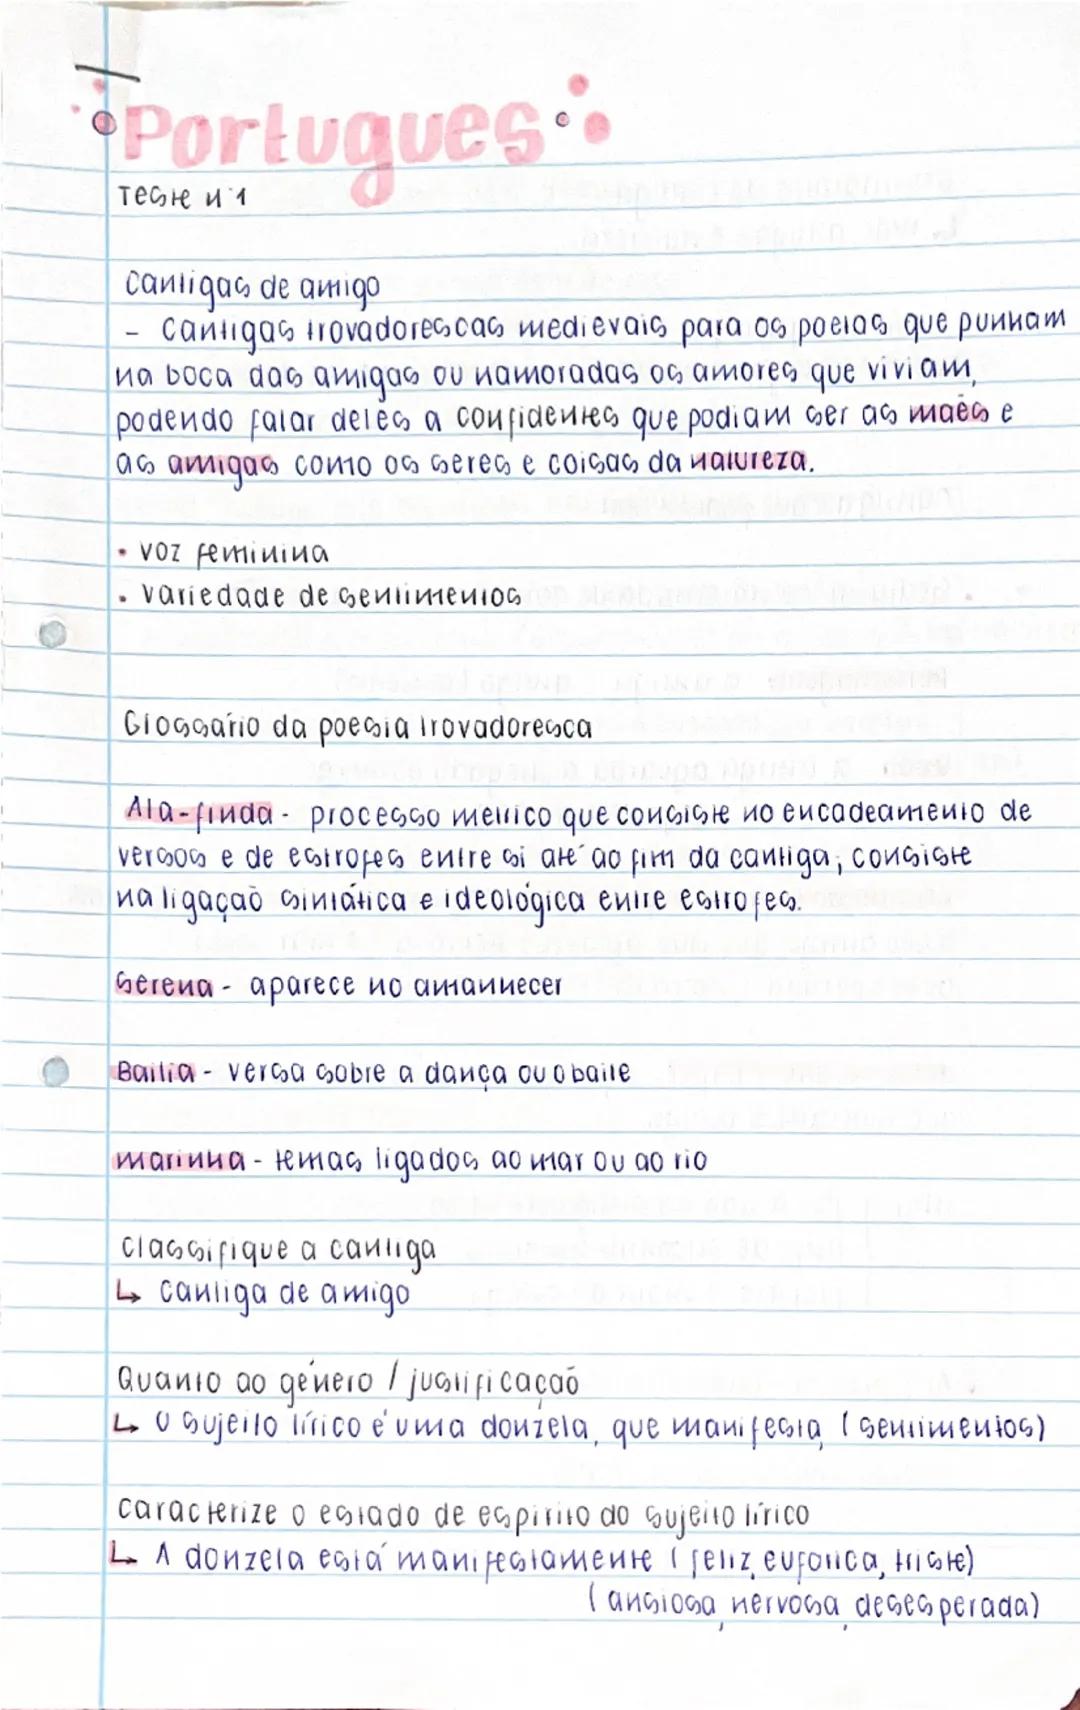 Portugues
Teste nº1
Cantigas de amigo
- Cantigas trovadorescas medievais para os poetas que punham
na boca das amigas ou namoradas os amores que viviam,
podendo falar deles a confidentes que podiam ser as maẽs e
as amigas como os seres e coisas da natureza.
• voz feminina
• variedade de sentimentos
Glossário da poesia trovadoresca
Ata-finda - processo metrico que consiste no encadeamento de
versos e de estrofes entre si até ao fim da cantiga; consiste
na ligação sintática e ideológica entre estrofes.
Serena - aparece no amannecer
Bailia - versa sobre a dança ou o baile
marinha - temas ligados ao mar ou ao rio
Classifique a cantiga
↳ Cantiga de amigo
Quanto ao género / justificação
↳ O sujeito lírico é uma donzela, que manifesta (sentimentos)
Caracterize o estado de espirito do sujeito lírico
↳ A donzela está manifestamente (feliz, euforica, triste)
(ansiosa, nervosa, desesperada)